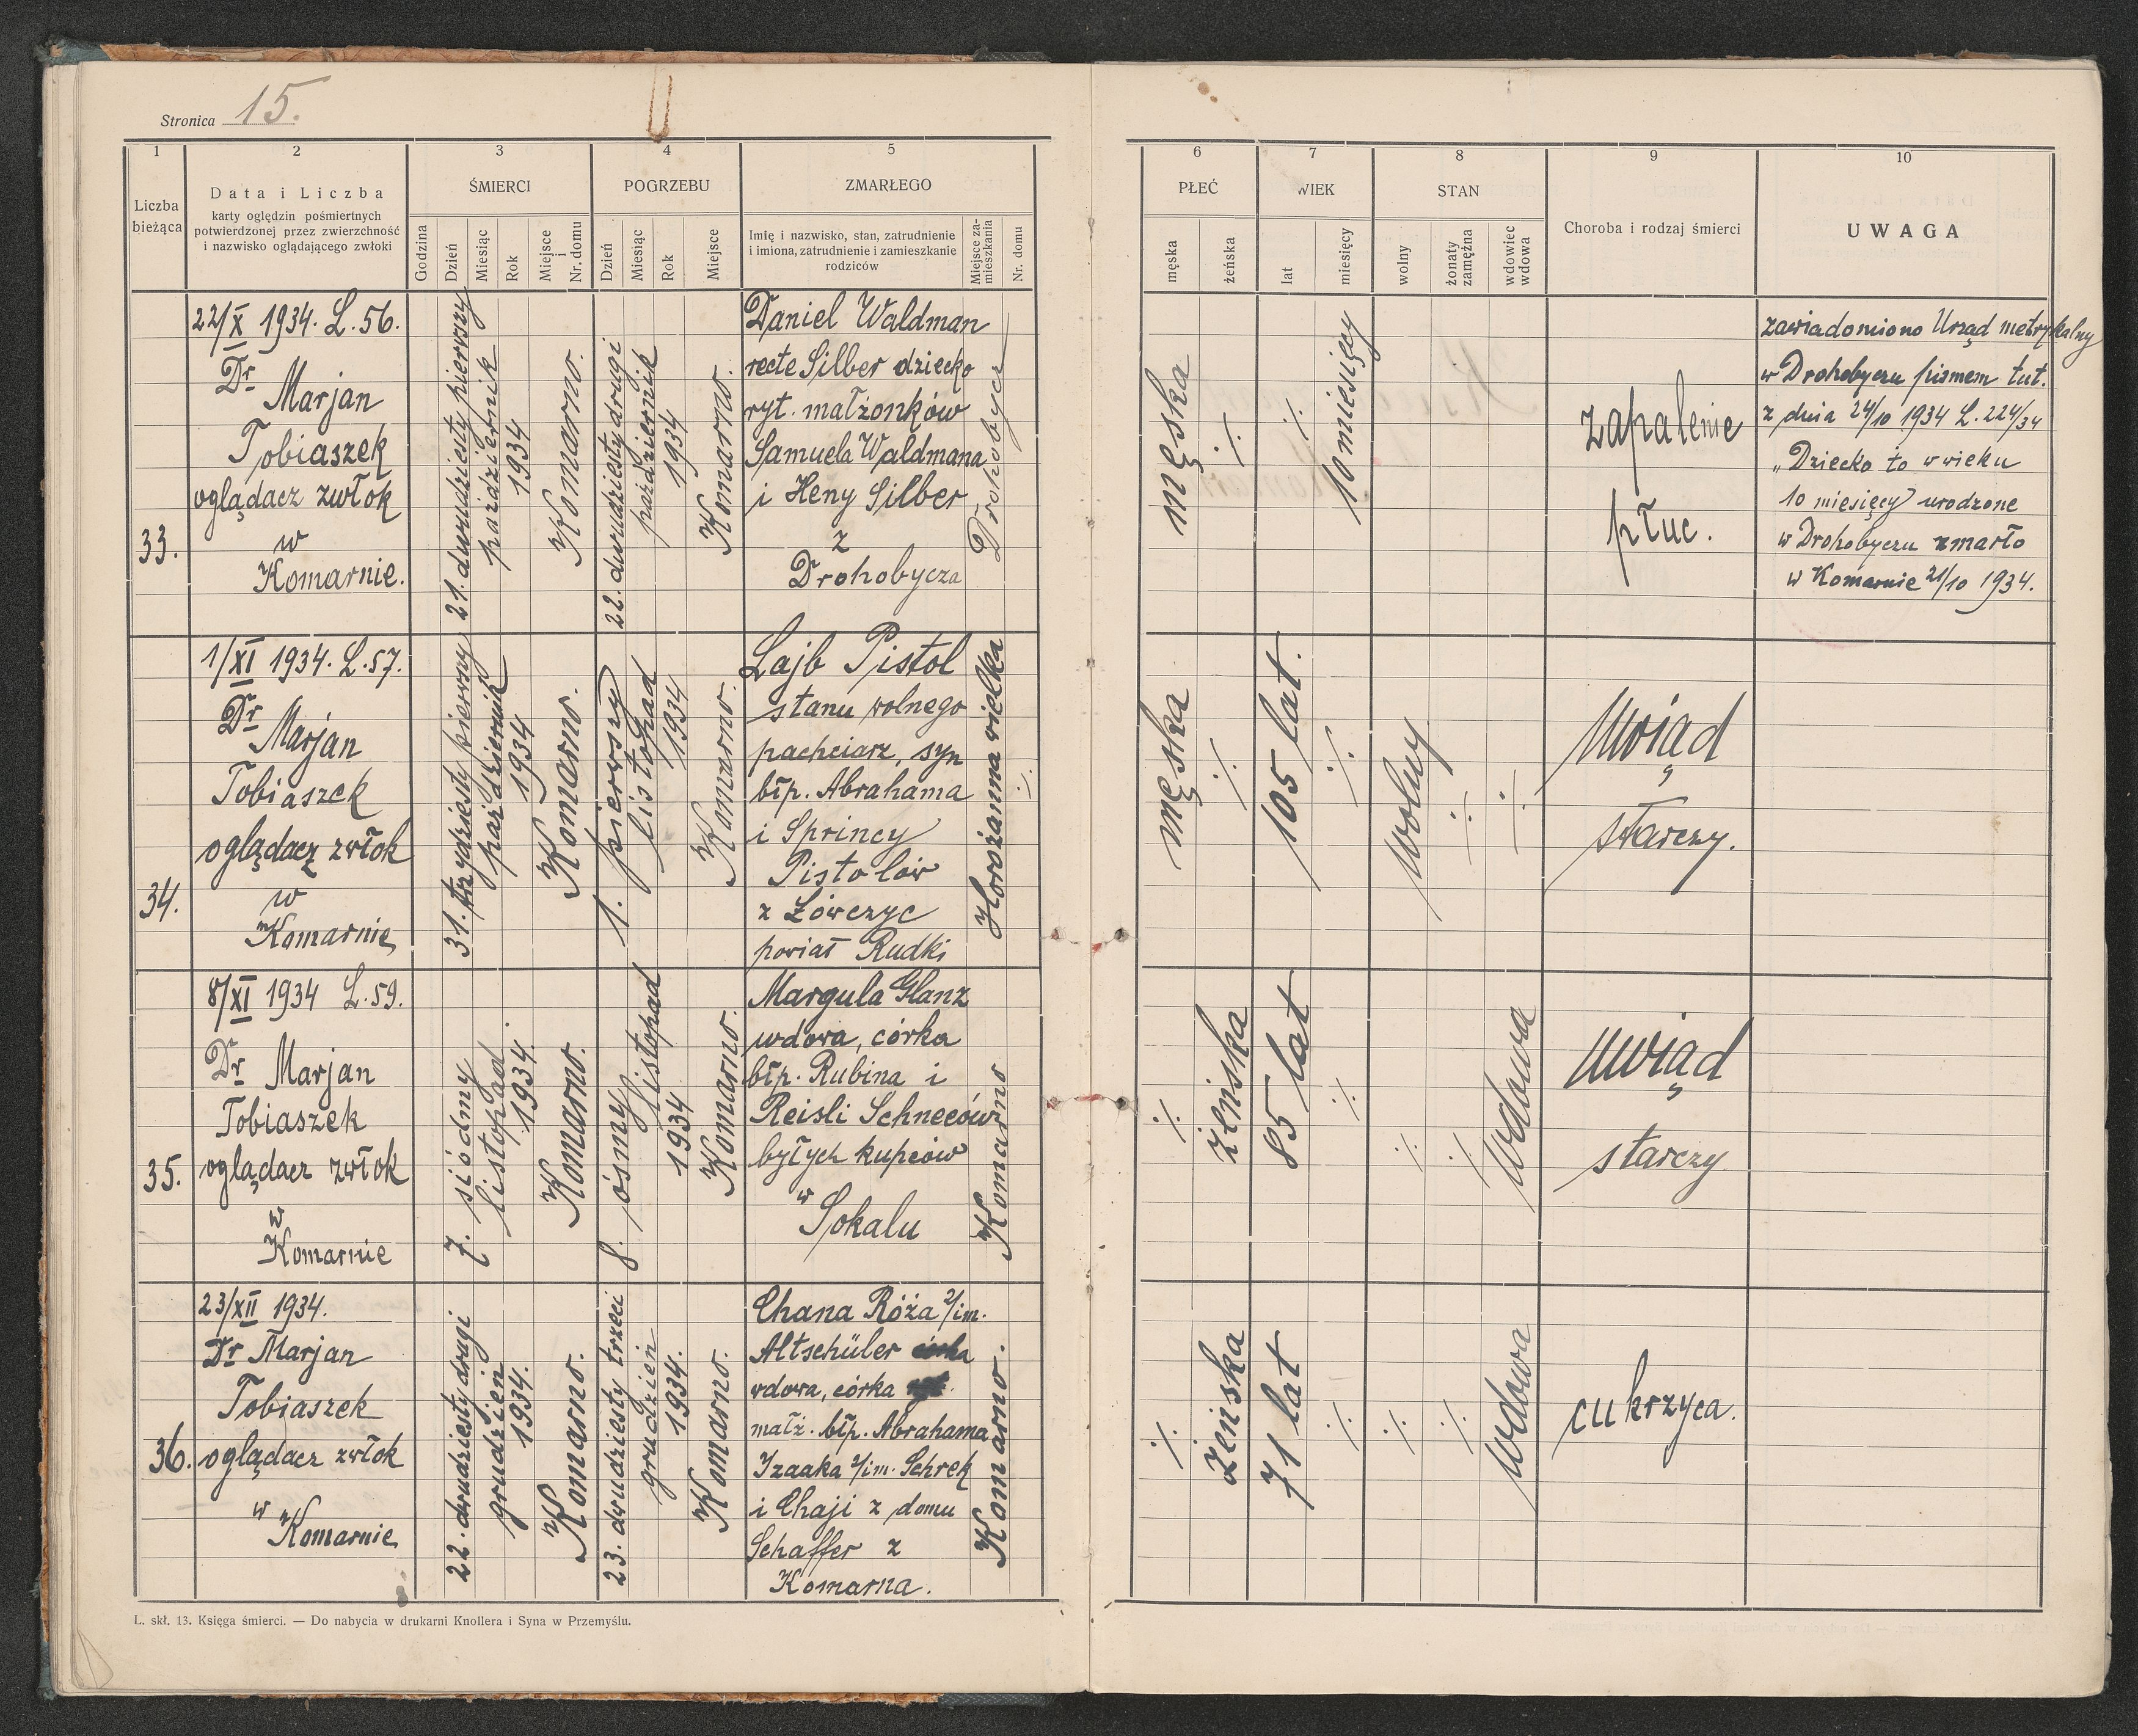 Stronica 15.
1 2 3 4 5 6 7 8 9 10
Liczba bieżąca
Data i Liczba
karty oględzin pośmiertnych
potwierdzonej przez zwierzchność
i nazwisko oglądającego zwłoki
ŚMIERCI
Godzina
Dzień
Miesiąc
Rok
Miejsce i Nr. domu
POGRZEBU
Dzień
Miesiąc
Rok
Miejsce
ZMARŁEGO
Imię i nazwisko, stan, zatrudnienie
i imiona, zatrudnienie i zamieszkanie
rodziców
Miejsce zamieszkania
Nr. domu
PŁEĆ
męska
żeńska
WIEK
lat
miesięcy
STAN
wolny
żonaty zamężna
wdowiec wdowa
Choroba i rodzaj śmierci
UWAGA
33.
22/X 1934. L.56.
Dr Marjan
Tobiaszek
oglądacz zwłok
w
Komarnie.
21. dwudziesty pierwszy
październik
1934
Komarno.
22. dwudziesty drugi
październik
1934
Komarno.
Daniel Waldman
recte Silber dziecko
ryt. małżonków
Samuela Waldmana
i Heny Silber
z
Drohobycza
Drohobycz
męska
·/·
·/·
10 miesięcy
zapalenie
płuc.
zawiadomiono Urząd metrykalny
w Drohobyczu pismem tut.
z dnia 24/10 1934 L. 224/34
„Dziecko to w wieku
10 miesięcy urodzone
w Drohobyczu zmarło
w Komarnie 21/10 1934.
34.
1/XI 1934. L.57.
Dr Marjan
Tobiaszek
oglądacz zwłok
w
Komarnie
31. trzydziesty pierwszy
październik
1934
Komarno.
1. pierwszy
listopad
1934
Komarno.
Lajb Pistol
stanu wolnego
pachciarz, syn
błp. Abrahama
i Sprincy
Pistolów
z Łówczyc
powiat Rudki
Horożanna wielka
·/·
męska
·/·
105 lat.
·/·
wolny
·/·
·/·
Uwiąd
starczy.
35.
8/XI 1934 L.59.
Dr Marjan
Tobiaszek
oglądacz zwłok
w
Komarnie
7. siódmy
listopad.
1934.
Komarno.
8. ósmy
listopad
1934
Komarno.
Margula Glanz
wdowa, córka
błp. Rubina i
Reisli Schneców
byłych kupców
w
Sokalu
Komarno
·/·
żeńska
85 lat
·/·
·/·
·/·
wdowa
Uwiąd
starczy
36.
23/XII 1934.
Dr Marjan
Tobiaszek
oglądacz zwłok
w
Komarnie
22. dwudziesty drugi
grudzień
1934.
Komarno.
23. dwudziesty trzeci
grudzień
1934.
Komarno.
Chana Róża 2/im.
Altschüler córka
wdowa, córka
małż. błp. Abrahama
Izaaka 2/im. Schrek
i Chaji z domu
Schaffer z
Komarna.
Komarno.
·/·
żeńska
71 lat
·/·
·/·
·/·
wdowa
cukrzyca.
L. skł. 13. Księga śmierci. — Do nabycia w drukarni Knollera i Syna w Przemyślu.